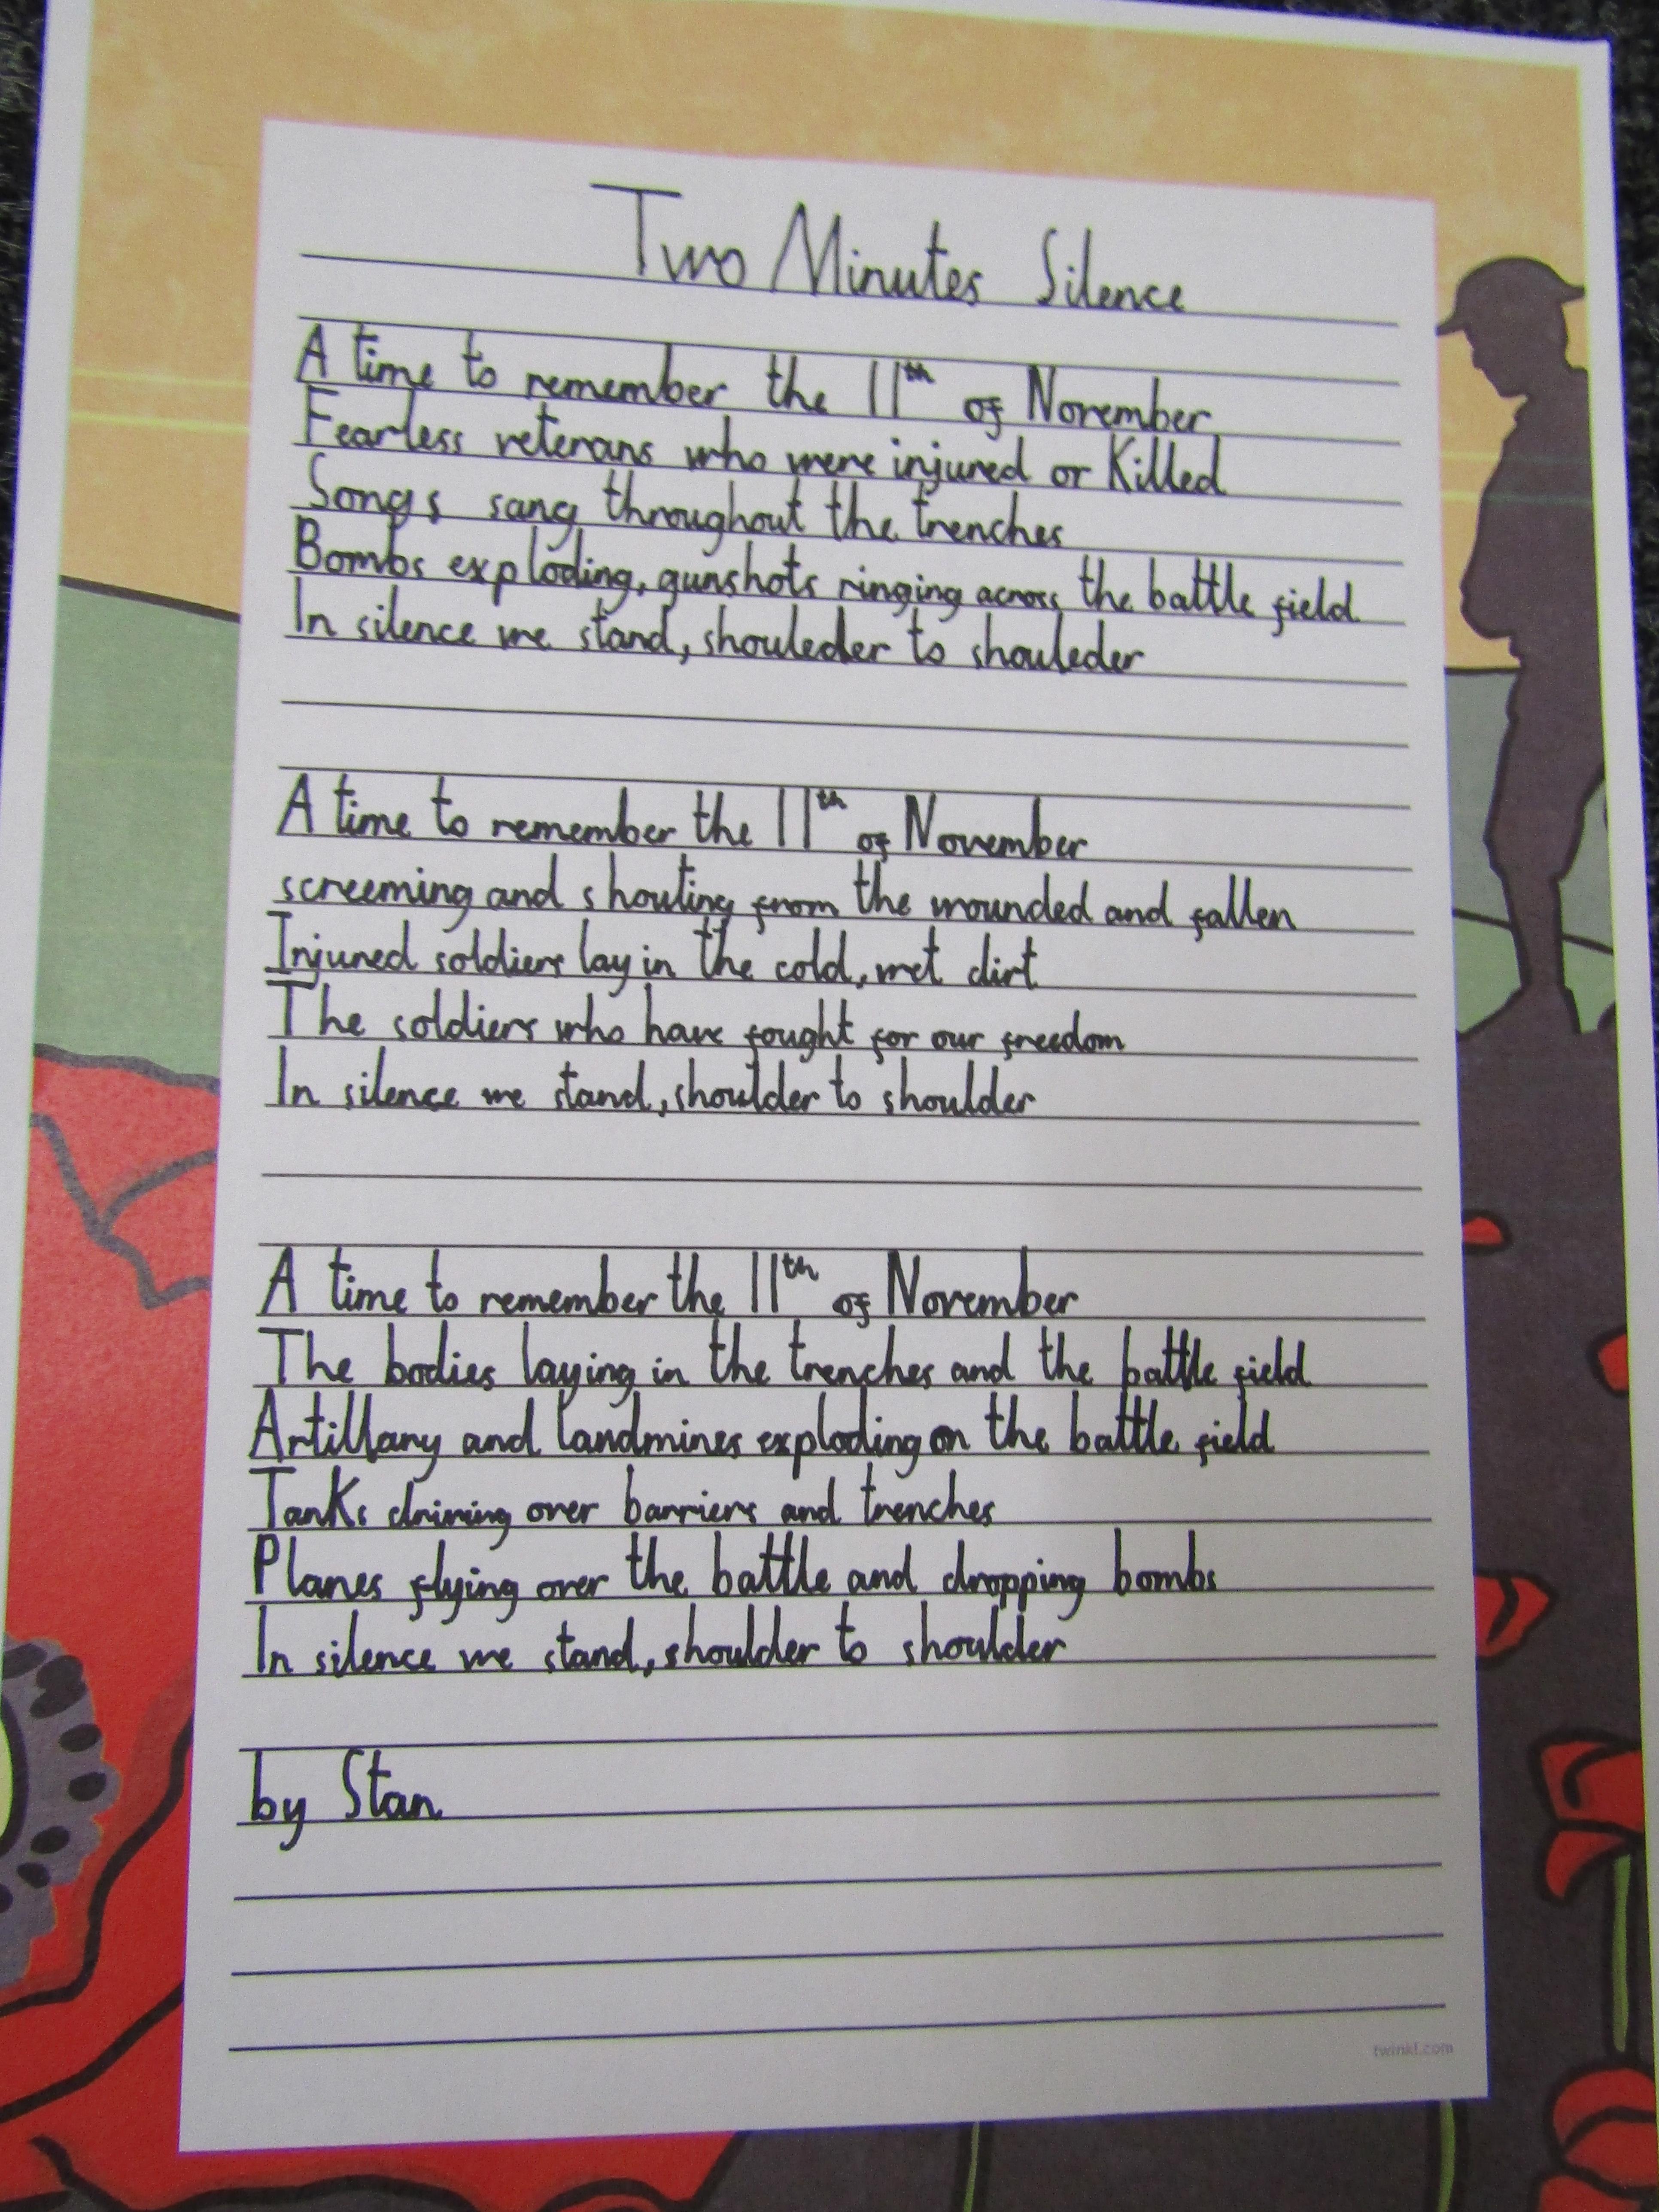 Two Minutes Silence
A time to remember the 11th of November
Fearless veterans who were injured or Killed
Songs sang throughout the trenches
Bombs exploding, gunshots ringing across the battle field
In silence we stand, shouleder to shouleder
A time to remember the 11th of November
screeming and shouting from the wounded and fallen
Injured soldiers lay in the cold, wet dirt
The soldiers who have fought for our freedom
In silence we stand, shoulder to shoulder
A time to remember the 11th of November
The bodies laying in the trenches and the battle field
Artillary and landmines exploding on the battle field
Tanks driving over barriers and trenches
Planes flying over the battle and dropping bombs
In silence we stand, shoulder to shoulder
by Stan
twinkl.com